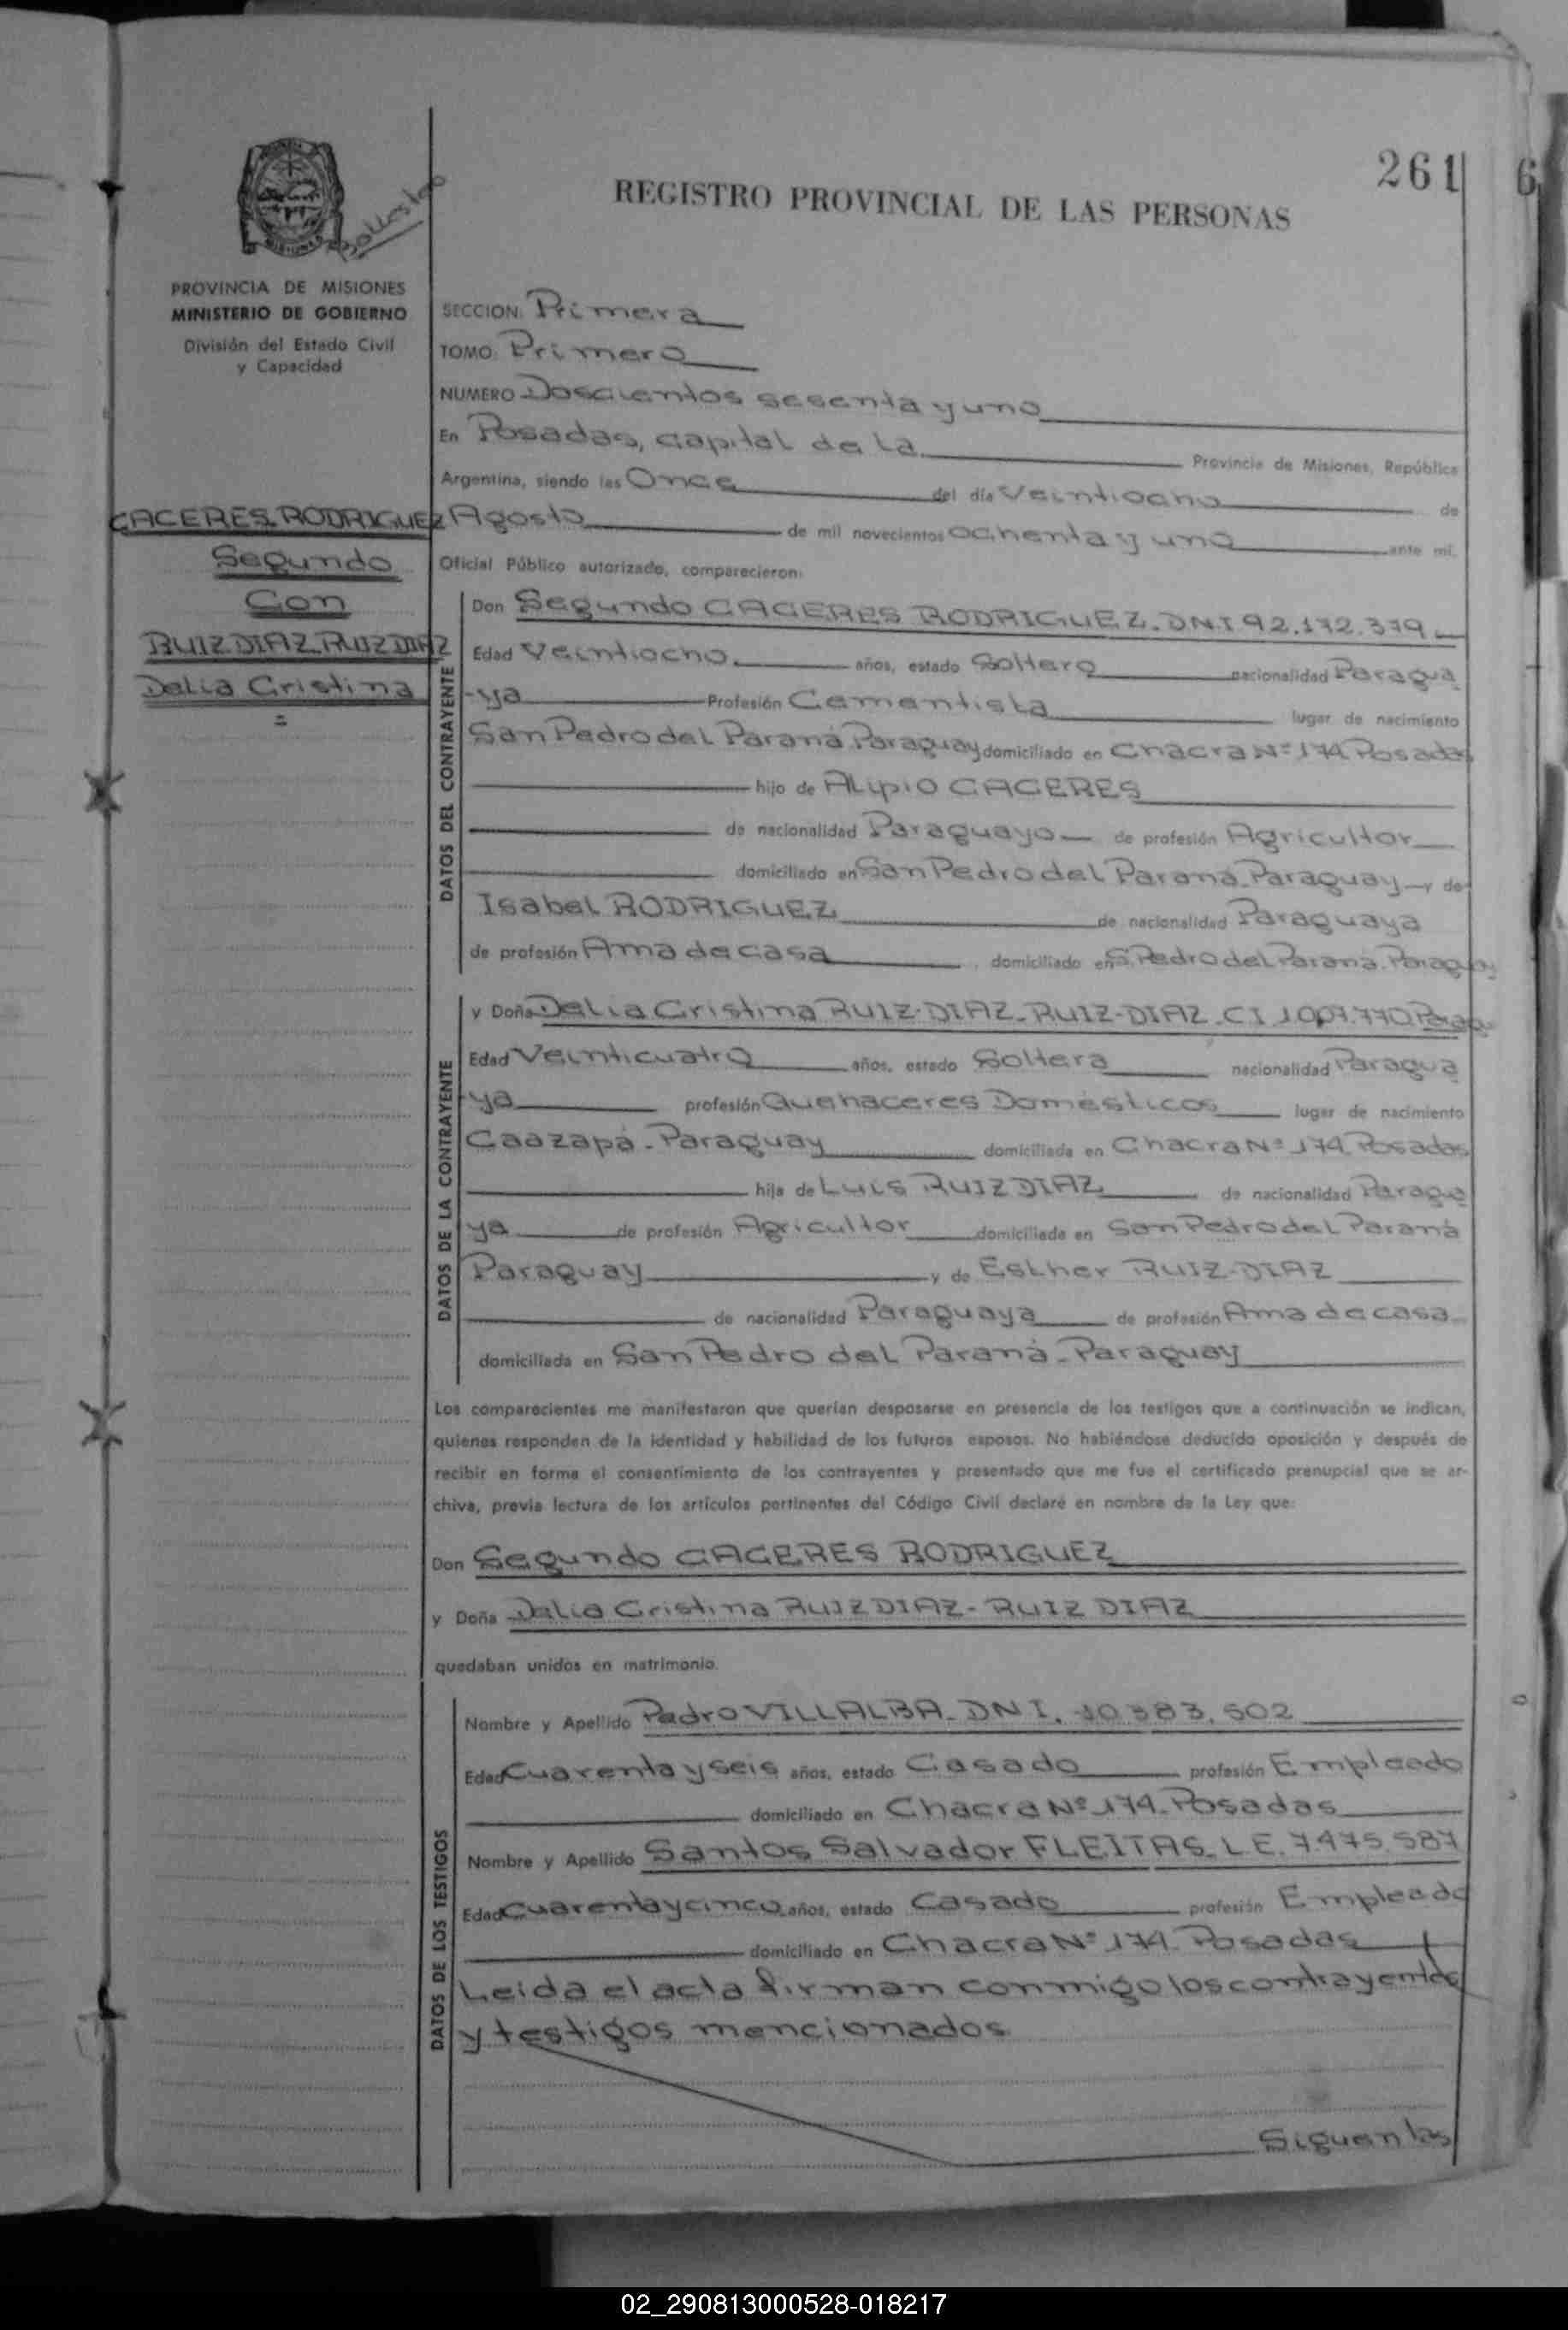 261
6
REGISTRO PROVINCIAL DE LAS PERSONAS
MISIONES
PROVINCIA DE MISIONES
MINISTERIO DE GOBIERNO
División del Estado Civil
y Capacidad
SECCION: Primera
TOMO: Primero
NUMERO Doscientos sesenta y uno
En Posadas, capital de la Provincia de Misiones, República
Argentina, siendo las Once del día Veintiocho de
CACERES RODRIGUEZ
Segundo
Con
RUIZ DIAZ RUIZ DIAZ
Delia Cristina
=
Agosto de mil novecientos ochenta y uno ante mí,
Oficial Público autorizado, comparecieron:
DATOS DEL CONTRAYENTE
Don Segundo CACERES RODRIGUEZ. DNI 92.172.379
Edad Veintiocho años, estado Soltero nacionalidad Paragua
-ya Profesión Cementista lugar de nacimiento
San Pedro del Paraná. Paraguay domiciliado en Chacra Nº 174. Posadas
hijo de Alipio CACERES
de nacionalidad Paraguayo de profesión Agricultor
domiciliado en San Pedro del Paraná. Paraguay y de
Isabel RODRIGUEZ de nacionalidad Paraguaya
de profesión Ama de casa domiciliado en S. Pedro del Paraná. Paraguay
DATOS DE LA CONTRAYENTE
y Doña Delia Cristina RUIZ-DIAZ-RUIZ-DIAZ. CI 1.007.770. Paragu
Edad Veinticuatro años, estado Soltera nacionalidad Paragua
ya profesión Quehaceres Domésticos lugar de nacimiento
Caazapá-Paraguay domiciliada en Chacra Nº 174. Posadas
hija de Luis RUIZ DIAZ de nacionalidad Paragua
ya de profesión Agricultor domiciliado en San Pedro del Paraná
Paraguay y de Esther RUIZ-DIAZ
de nacionalidad Paraguaya de profesión Ama de casa
domiciliada en San Pedro del Paraná-Paraguay
Los comparecientes me manifestaron que querían desposarse en presencia de los testigos que a continuación se indican,
quienes responden de la identidad y habilidad de los futuros esposos. No habiéndose deducido oposición y después de
recibir en forma el consentimiento de los contrayentes y presentado que me fue el certificado prenupcial que se ar-
chiva, previa lectura de los artículos pertinentes del Código Civil declaré en nombre de la Ley que:
Don Segundo CACERES RODRIGUEZ
y Doña Delia Cristina RUIZ DIAZ-RUIZ DIAZ
quedaban unidos en matrimonio.
DATOS DE LOS TESTIGOS
Nombre y Apellido Pedro VILLALBA. DNI. 10.383.502
Edad Cuarenta y seis años, estado Casado profesión Empleado
domiciliado en Chacra Nº 174. Posadas
Nombre y Apellido Santos Salvador FLEITAS. L.E. 7.475.587
Edad Cuarenta y cinco años, estado Casado profesión Empleado
domiciliado en Chacra Nº 174. Posadas
Leida el acta firman conmigo los contrayentes
y testigos mencionados
Siguen las
02_290813000528-018217